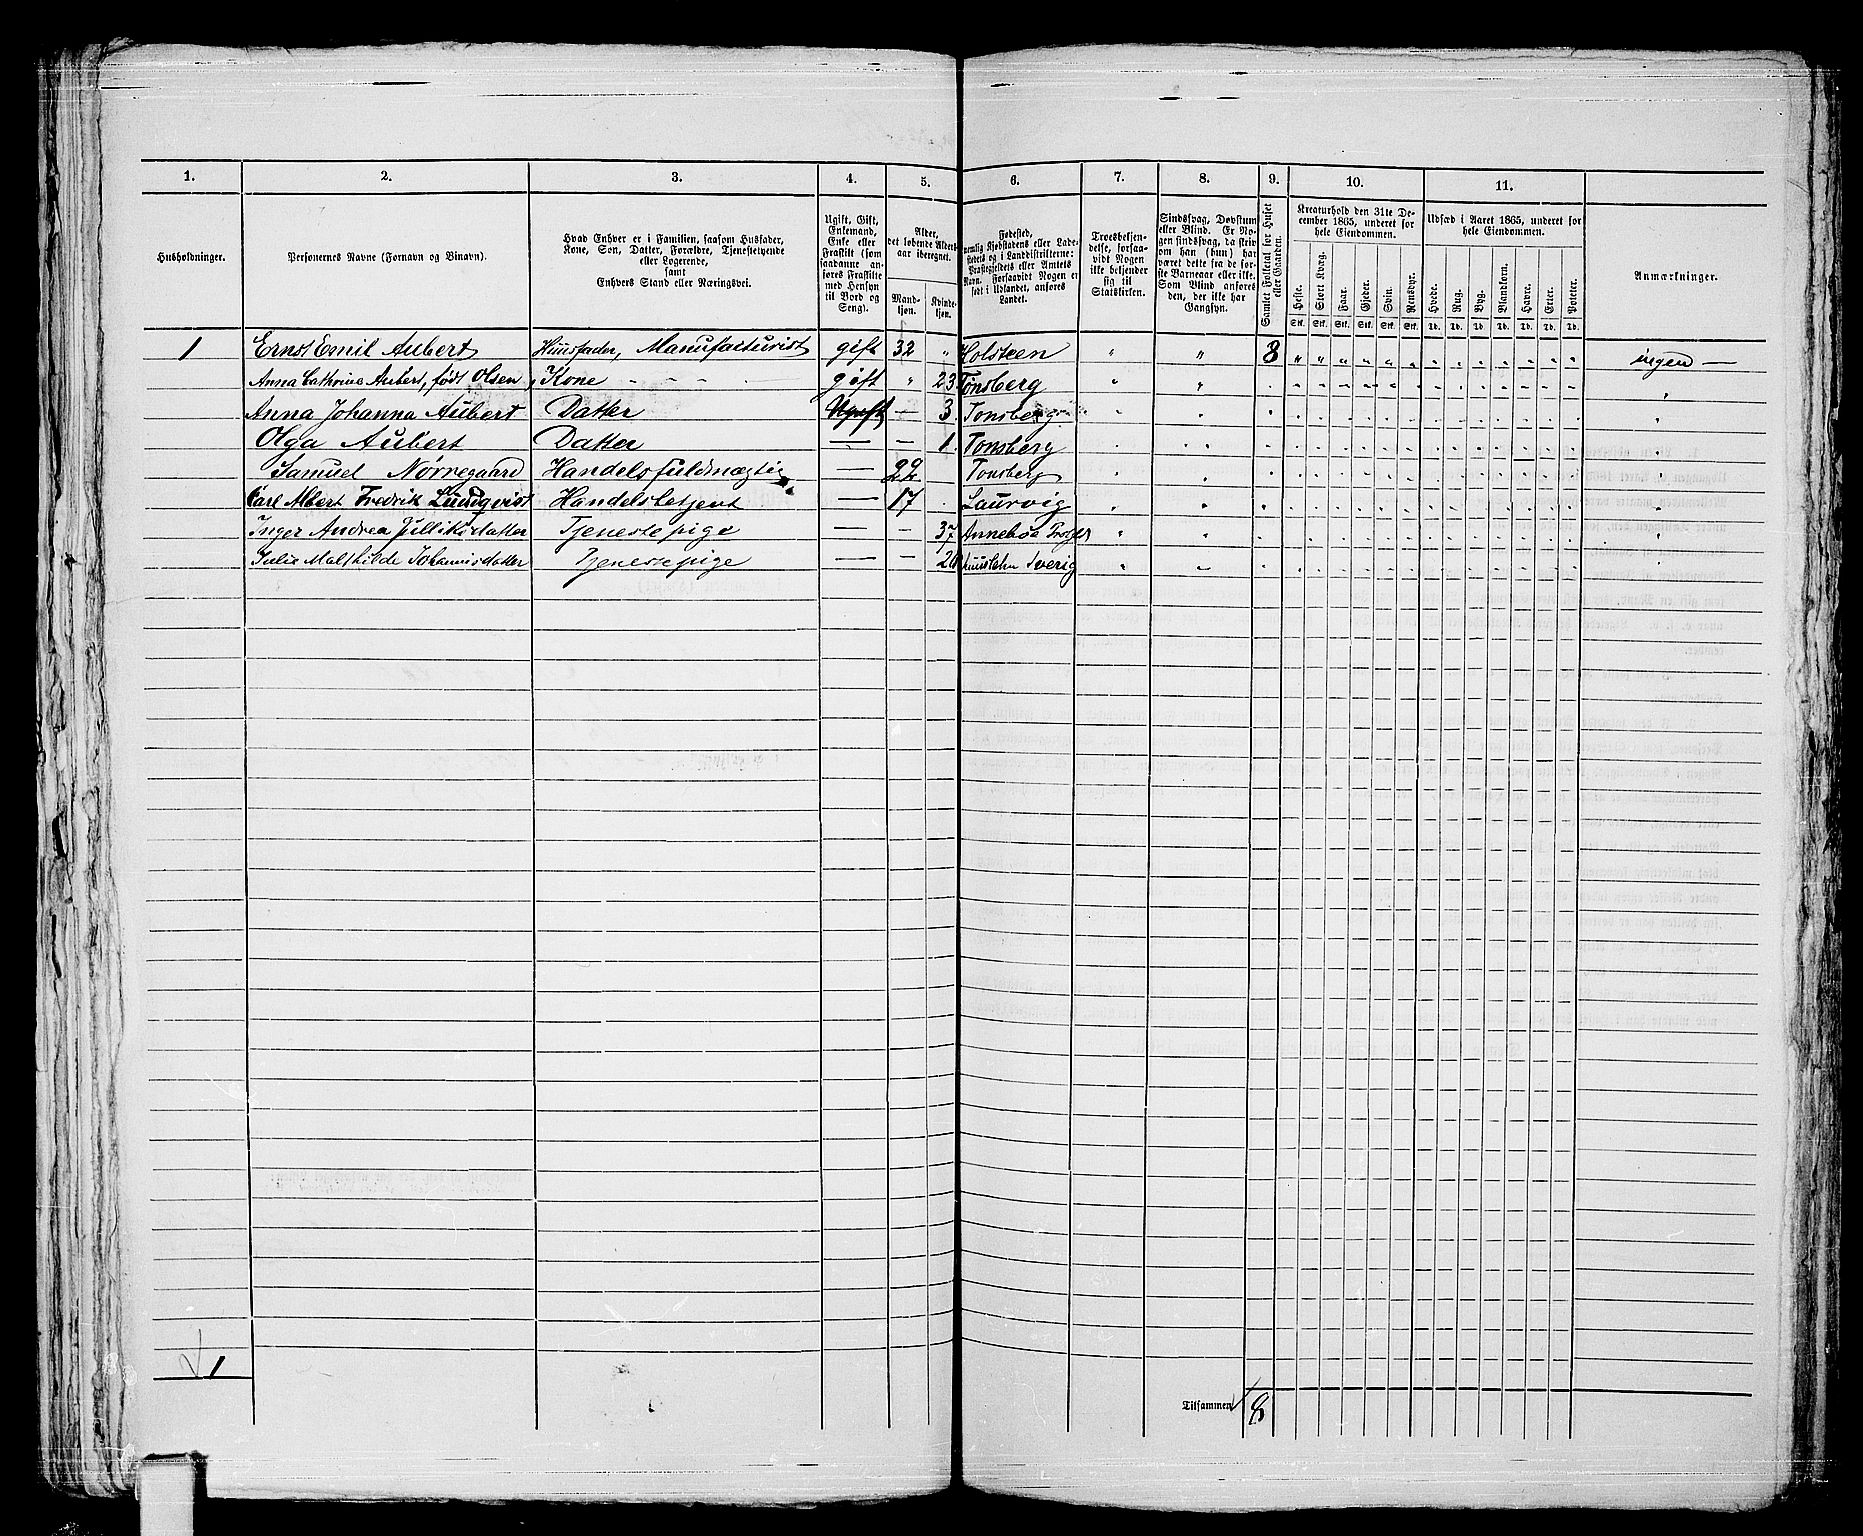 1. 2. 3. 4. 5. 6. 7. 8. 9. 10. 11.
Husholdninger.
Personernes Navne (Fornavn og Binavn).
Hvad Enhver er i Familien, saasom Husfader,
Kone, Søn, Datter, Forældre, Tjenestetyende
eller Logerende,
samt
Enhvers Stand eller Næringsvei.
Ugift, Gift,
Enkemand,
Enke eller
Fraskilt (som
saadanne an-
føres Fraskilte
med Hensyn
til Bord og
Seng).
Alder,
det løbende Alders-
aar iberegnet.
Mand-
kjøn.
Kvinde-
kjøn.
Fødested,
nemlig Kjøbstadens eller Lade-
stedets og i Landdistrikterne:
Præstegjeldets eller Amtets
Navn. Forsaavidt Nogen er
født i Udlandet, anføres
Landet.
Troesbekjen-
delse, forsaa-
vidt Nogen
ikke bekjender
sig til
Statskirken.
Sindssvag, Døvstum
eller Blind. Er No-
gen sindssvag, da skriv
om han (hun) har
været dette fra de før-
ste Barneaar eller ikke.
Som Blind anføres
den, der ikke har
Gangsyn.
Samlet Folketal for Huset
eller Gaarden.
Kreaturhold den 31te De-
cember 1865, underet for
hele Eiendommen.
Heste. Stort Kvæg. Faar. Gjeder. Svin. Rensdyr.
Stk. Stk. Stk. Stk. Stk. Stk.
Udsæd i Aaret 1865, underet for
hele Eiendommen.
Hvede. Rug. Byg. Blandkorn. Havre. Erter. Poteter.
Td. Td. Td. Td. Td. Td. Td.
Anmærkninger.
1 Ernst Emil Aubert Huusfader, Manufacturist gift 32 " Holsteen " " 8 " " " " " " " " " " " " " ingen —
Anna Cathrine Aubert, født Olsen, Kone - - - - gift " 23. Tønsberg
Anna Johanna Aubert Datter Ugift — 3. Tønsberg
Olga Aubert Datter — — 1. Tønsberg
Samuel Nørregaard Handelsfuldmægtig — 22 Tønsberg
Carl Albert Fredrik Lundqvist Handelsbetjent — 17 Laurvig
Inger Andrea Datter Tjenestepige — — 37 Annebøe
Julie Malthilde Johannisdatter Tjenestepige — — Sverig
1
Tilsammen 8